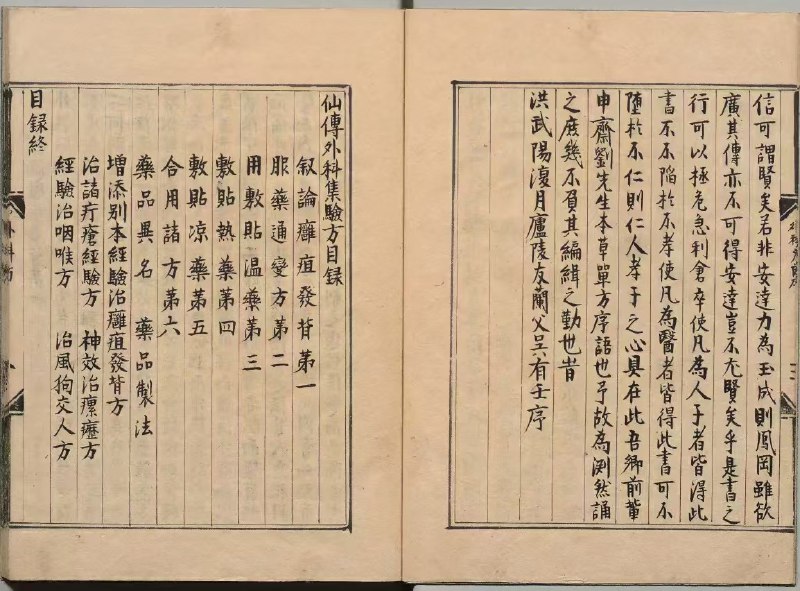 信可謂賢矣若非安達力為玉成則鳳岡雖欲
廣其傳亦不可得安達豈不尤賢矣乎是書之
行可以拯危急利倉卒使凡為人子者皆得此
書不不陷於不孝使凡為醫者皆得此書可不
墮於不仁則仁人孝子之心具在此吾鄉前輩
申齋劉先生本草單方序語也予故為渕然誦
之庶幾不負其編緝之勤也昔
洪武陽復月廬陵友蘭父吳有壬序
仙傳外科集驗方目録
叙論癰疽發背第一
服藥通變方第二
用敷貼温藥第三
敷貼熱藥第四
敷貼凉藥第五
合用諸方第六
藥品異名 藥品製法
增添别本經驗治癰疽發背方
治諸疔瘡經驗方 神效治瘰癧方
經驗治咽喉方 治風狗交人方
目録終